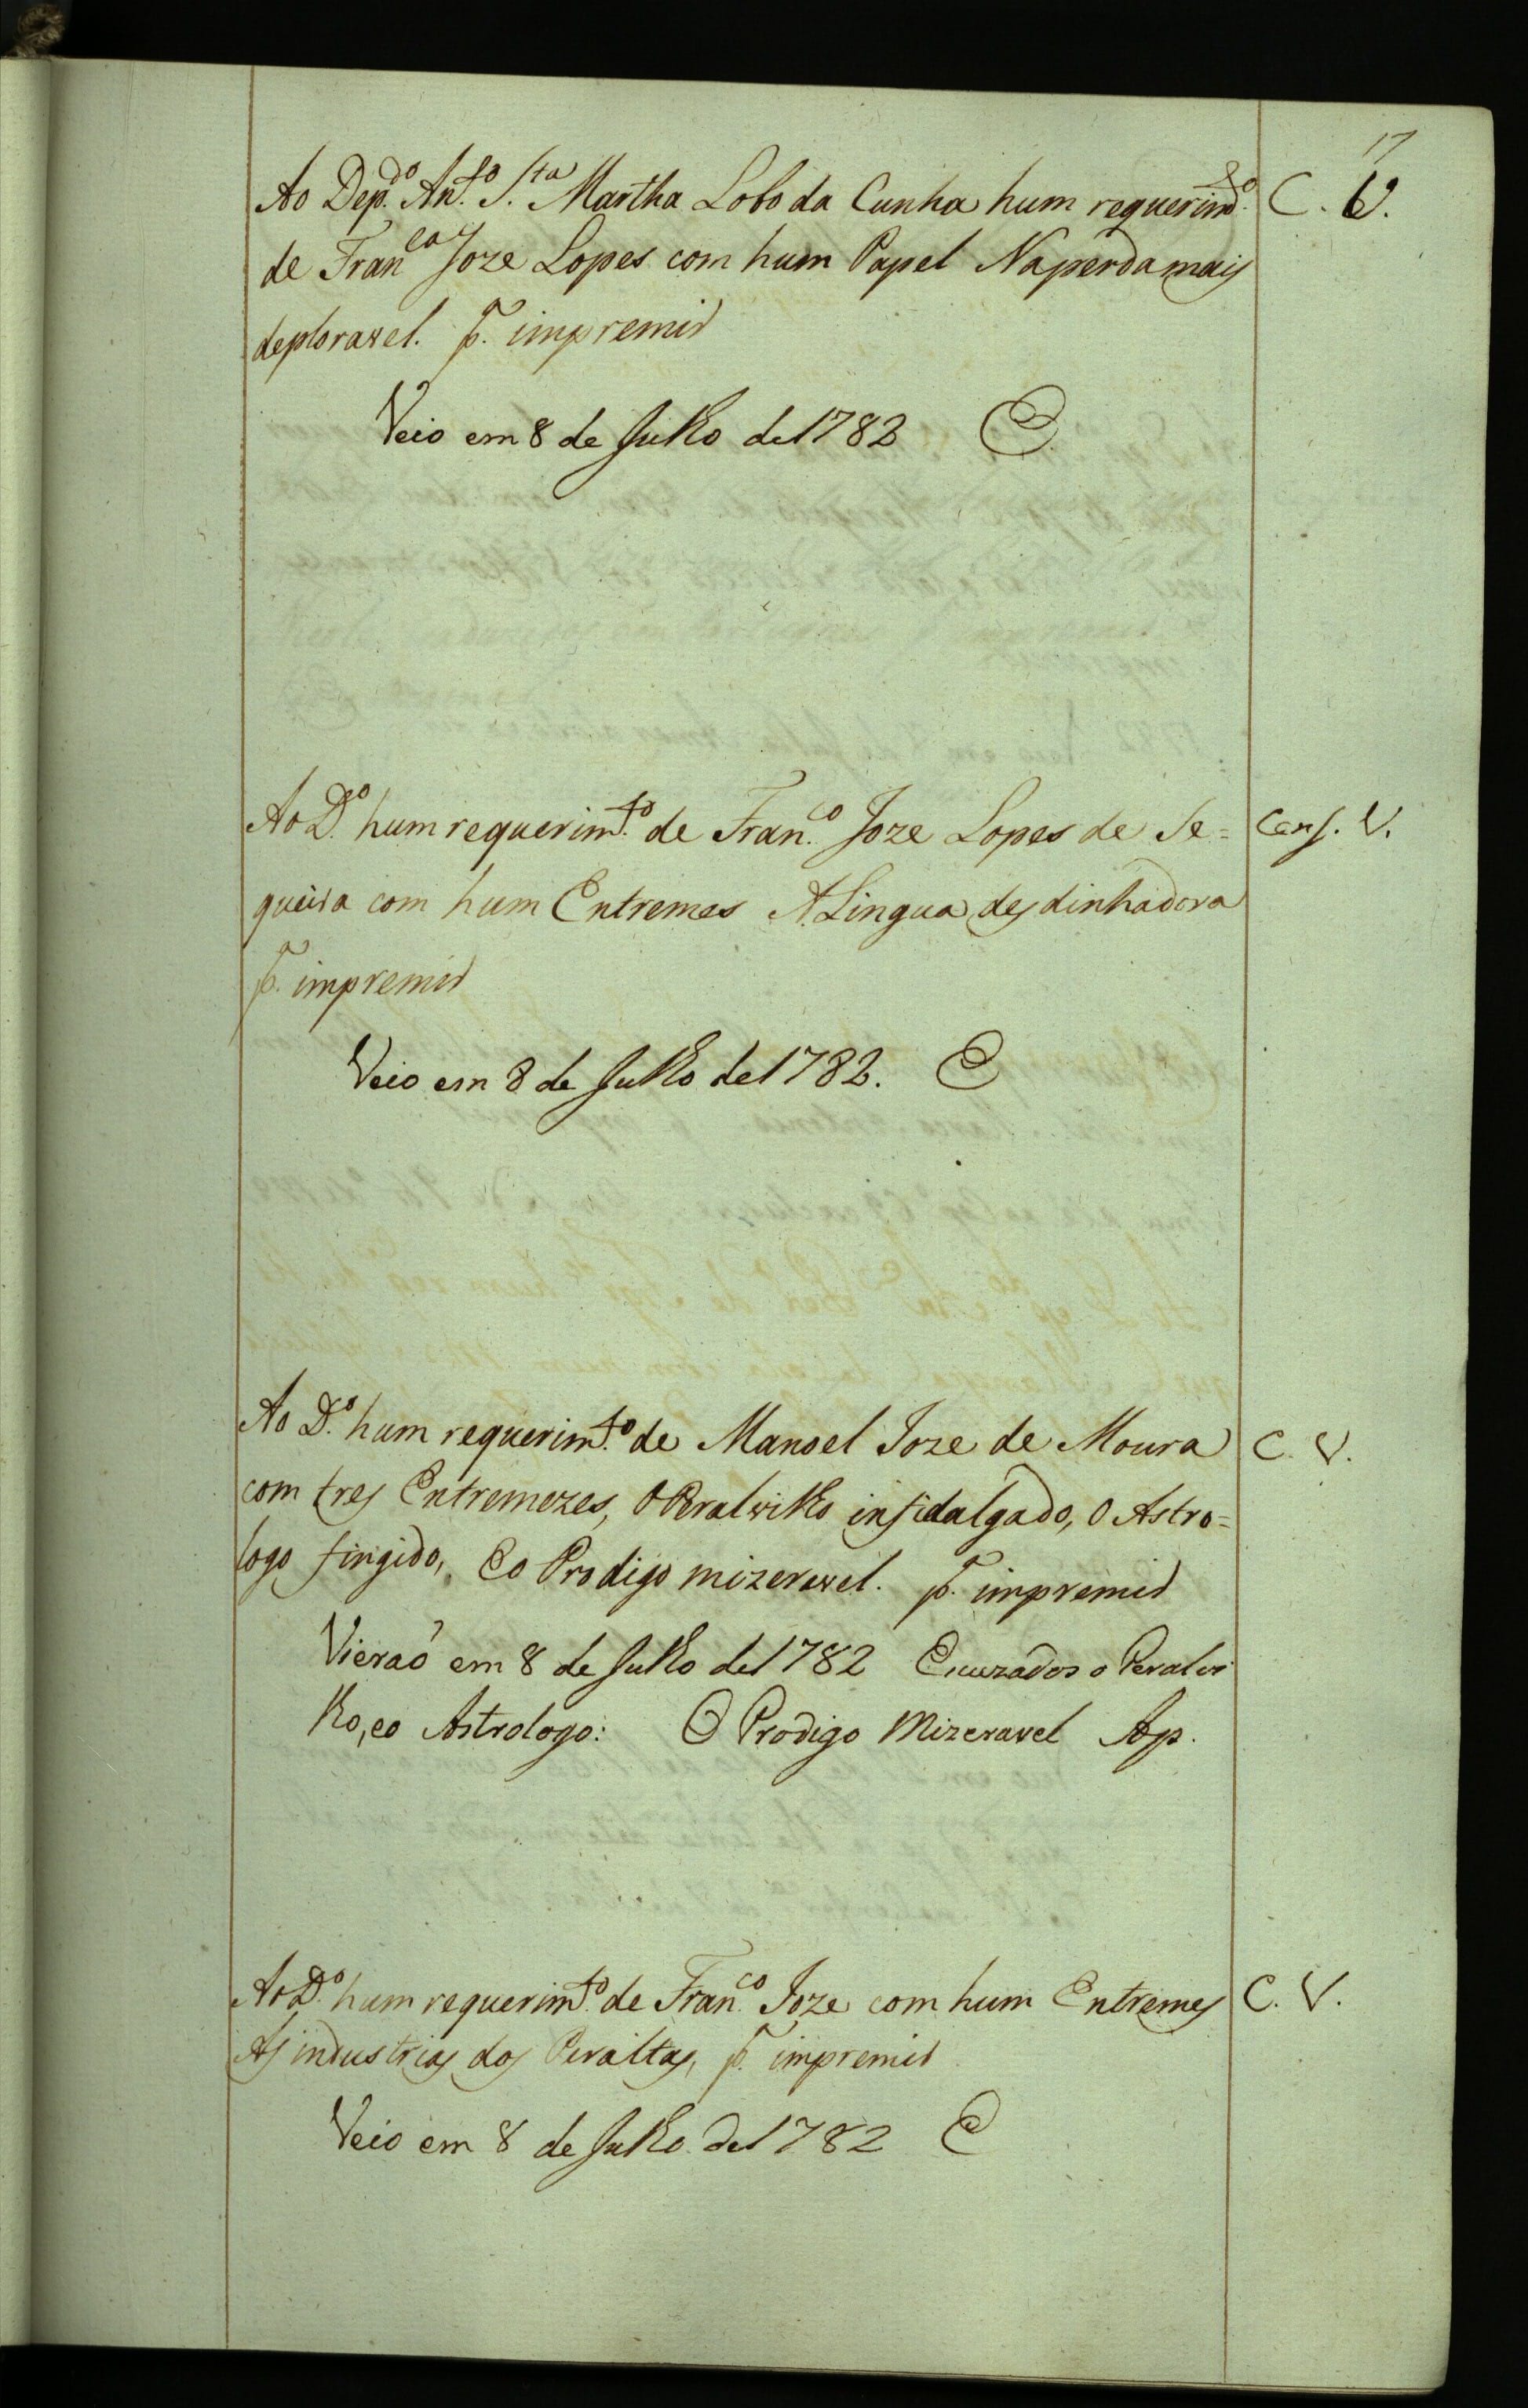 17
Ao Dep.do An.to S.ta Martha Lobo da Cunha hum requerim.to C. V.
de Fran.co Joze Lopes com hum Papel Na perda mais
deploravel. p.a impremir
Veio em 8 de Julho de 1782 E.
Ao D.o hum requerim.to de Fran.co Joze Lopes de Se= Cens. V.
queira com hum Entremes A Lingua desdinhadora
p.a impremir
Veio em 8 de Julho de 1782. E
Ao D.o hum requerim.to de Manoel Joze de Moura C. V.
com tres Entremezes, O Peralvilho infidalgado, O Astro=
logo fingido, E o Prodigo mizeravel. p.a impremir
Vieraõ em 8 de Julho de 1782 Escuzados o Peralvi
lho, e o Astrologo: O Prodigo Mizeravel Ap.
Ao D.o hum requerim.to de Fran.co Joze com hum Entremes C. V.
As industrias dos Peraltas, p.a impremir
Veio em 8 de Julho de 1782 E